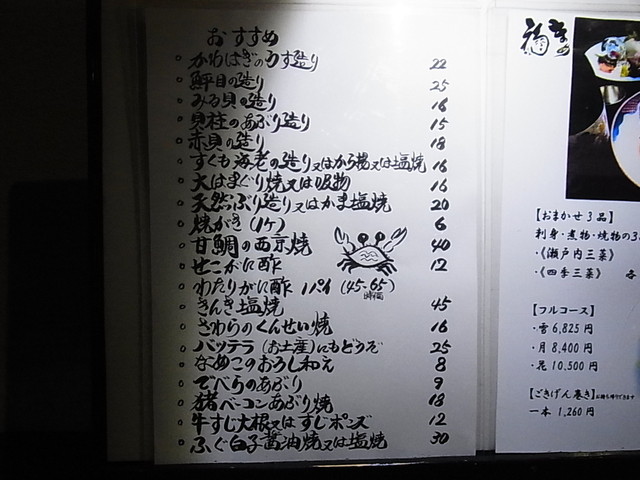 おすすめ
かわはぎのうす造り 22
鮃平目の造り 25
みる貝の造り 16
貝柱のあぶり造り 15
赤貝の造り 18
すくも海老の造り又はから揚又は塩焼 16
大はまぐり焼又は吸物 16
天然ぶり造り又はかま塩焼 20
焼がき(1ケ) 6
甘鯛の西京焼 40
せこがに酢 12
わたりがに酢 1パイ (45-65)
時価
きんき塩焼 45
さわらのくんせい焼 16
バッテラ(お土産)にもどうぞ 25
なめこのおろし和え 8
でべらのあぶり 9
猪ベーコンあぶり焼 18
牛すじ大根又はすじポンズ 12
ふぐ白子醤油焼又は塩焼 30
【おまかせ3品】
刺身・煮物・焼物の3
・《瀬戸内三菜》
・《四季三菜》 各
【フルコース】
・雪 6,825円
・月 8,400円
・花 10,500円
【ごきげん巻き】お持ち帰りできます
一本 1,260円